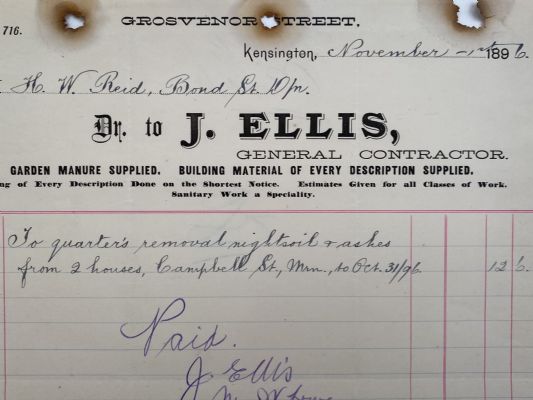 GROSVENOR STREET.
716.
Kensington, November 1st 1896.
H. W. Reid, Bond St. Dn.
Dr. to J. ELLIS,
GENERAL CONTRACTOR.
GARDEN MANURE SUPPLIED. BUILDING MATERIAL OF EVERY DESCRIPTION SUPPLIED.
of Every Description Done on the Shortest Notice. Estimates Given for all Classes of Work.
Sanitary Work a Speciality.
To quarter's removal nightsoil & ashes
from 2 houses, Campbell St., Mrn., to Oct. 31/96. 12 6.
Paid.
J Ellis